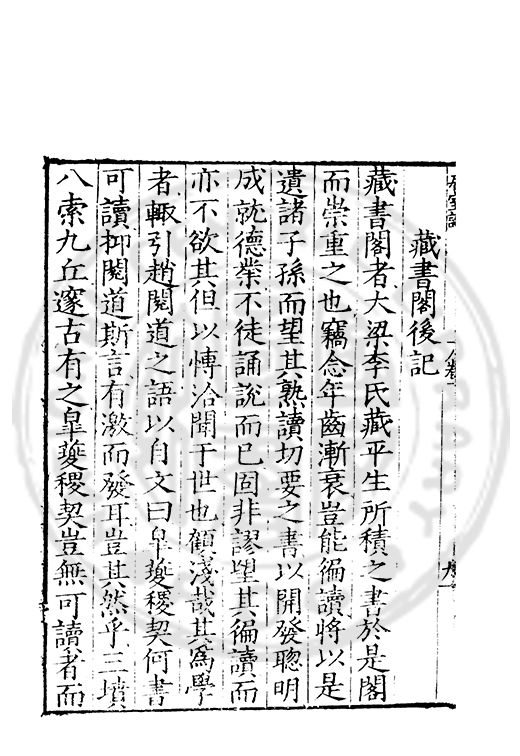 藏書閣後記
藏書閣者大梁李氏藏平生所積之書於是閣
而崇重之也竊念年齒漸衰豈能徧讀將以是
遺諸子孫而望其熟讀切要之書以開發聰明
成就德業不徒誦說而已固非謬望其徧讀而
亦不欲其但以愽洽聞于世也顧淺哉其爲學
者輙引趙閱道之語以自文曰皐夔稷契何書
可讀抑閱道斯言有激而發耳豈其然乎三墳
八索九丘邃古有之皐夔稷契豈無可讀者而